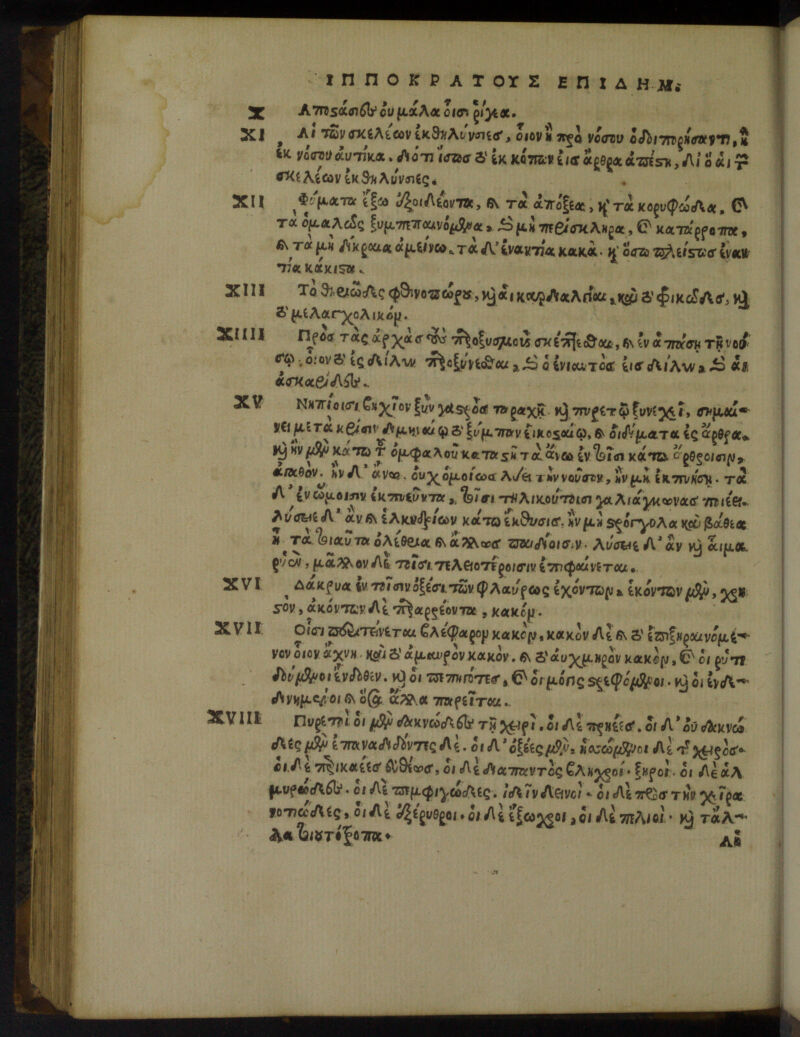 ΙΠΠΟΚΡΑΤΟΥΣ ΕΠΙΔΗΜ.
X Ἀποστάσιες οὐ μάλα οἷσι ῥίγεα.
XI Αἱ τῶν σκελέων ἐκθηλύνσιες, οἷον ἢ πρὸ νόσου ἢ
ἐκ νόσου αὐτίκα. διότι ἴσως τὸ ἐκ κόπων εἰς ἄρθρα ἀπέστη, δι' ὃ αἱ τῶν
σκελέων ἐκθηλύνσιες.
XII Φύματα ἔξω, καὶ τὰ ἀπόξεα, καὶ τὰ κορυφώδεα, καὶ
τὰ ὁμαλῶς ξυμπεπαινόμενα, καὶ μὴ περίσκληρα, καὶ κατάρροπα,
καὶ τὰ μὴ δίκραια ἀμείνω. τὰ δ' ἐναντία κακά. καὶ ὅσα πλεῖστον ἐναν
τία κάκιστα.
XIII Τὸ θηριῶδες φθινοπώρου, καὶ αἱ καρδιαλγίαι, καὶ τὸ φρικῶδες, καὶ
τὸ μελαγχολικόν.
XIIII Πρὸς τὰς ἀρχὰς τοὺς παροξυσμοὺς σκέπτεσθαι, καὶ ἐν ἁπάσῃ τῇ νού
σῳ. οἷον τὸ ἐς δείλην παροξύνεσθαι, καὶ ὁ ἐνιαυτὸς εἰς δείλην, καὶ αἱ
ἀσκαρίδες.
XV Νηπίοισι βηχίον ξὺν γαστρὸς ταραχῇ καὶ πυρετῷ ξυνεχεῖ, σημαί-
νει μετὰ κρίσιν διμηναίῳ τὸ ξύμπαν εἰκοσταίῳ, καὶ οἰδήματα ἐς ἄρθρα.
καὶ ἢν μὲν κάτω τοῦ ὀμφαλοῦ καταστῇ τὰ ἄνω ἐν τοῖσι κάτω ἄρθροισιν,
ἀγαθόν. ἢν δ' ἄνω, οὐχ ὁμοίως λύει τὴν νοῦσον, ἢν μὴ ἐκπυήσῃ. τὰ
δ' ἐν ὤμοισιν ἐκπυεῦντα, τοῖσι τηλικούτοισι γαλιάγκωνας ποιέει.
λύσειε δ' ἂν καὶ ἑλκυδρίων κάτω ἔκθυσις, ἢν μὴ στρογγύλα καὶ βάθεα
ᾖ. τὰ τοιαῦτα ὀλέθρια καὶ ἄλλως παιδίοισιν. λύσειε δ' ἂν καὶ αἷμα
ῥυέν, μᾶλλον δὲ τοῖσι τελειοτέροισιν ἐπιφαίνεται.
XVI Δάκρυα ἐν τοῖσιν ὀξέσι τῶν φλαύρως ἐχόντων, ἑκόντων μὲν, χρη
στὸν, ἀκόντων δὲ παραρρέοντα, κακόν.
XVII Οἷσι περιτείνεται βλέφαρον κακόν, κακὸν δὲ καὶ τὸ ἐπιξηραινόμε-
νον οἷον ἄχνη. καὶ τὸ ἀμαυρὸν κακόν. καὶ τὸ αὐχμηρὸν κακόν, καὶ οἱ ῥυτι
δούμενοι ἔνδοθεν. καὶ οἱ πεπηγότες, καὶ οἱ μόγις στρεφόμενοι. καὶ οἱ ἐνδε-
δινημένοι καὶ ὅσα ἄλλα παρεῖται.
XVIII Πυρετοὶ οἱ μὲν δακνώδεες τῇ χειρί, οἱ δὲ πρηέες. οἱ δ' οὐ δακνώ
δεες μὲν ἐπαναδιδόντες δὲ. οἱ δ' ὀξέες μὲν, ἡσσώμενοι δὲ τῆς χειρὸς.
οἱ δὲ περικαέες εὐθέως, οἱ δὲ διαπαντὸς βληχροί. ξηροί. οἱ δὲ ἁλ
μυρώδεες. οἱ δὲ πεμφιγώδεες. ἰδεῖν δεινοί. οἱ δὲ πρὸς τὴν χεῖρα
νοτιώδεες, οἱ δὲ ἐξέρυθροι. οἱ δὲ ἔξωχροι, οἱ δὲ πελιοί. καὶ τἄλ-
λα τοιουτότροπα.
Διὸ